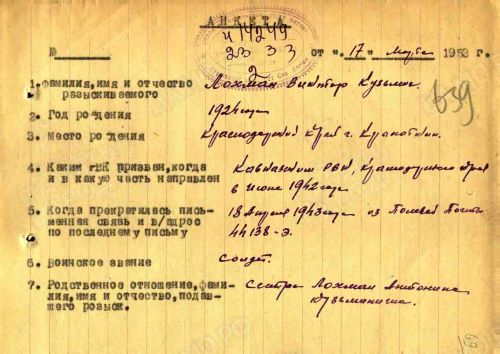 АНКЕТА
№
ч 14249
23 3 3
от "17" Марта 1953 г.
639
1. Фамилия, имя и отчество
разыскиваемого
Лохман Виктор Кузьмич.
2. Год рождения
1924 года
3. Место рождения
Краснодарский край г. Кропоткин.
4. Каким РВК призван, когда
и в какую часть направлен
Кавказским РВК, Краснодарского края
в июне 1942 года
5. Когда прекратилась пись-
менная связь и в/адрес
по последнему письму
18 Апреля 1943 года из Полевой Почты
44138-Э.
6. Воинское звание
солдат.
7. Родственное отношение, фами-
лия, имя и отчество, подав-
шего розыск.
Сестра Лохман Антонина
Кузьминична.